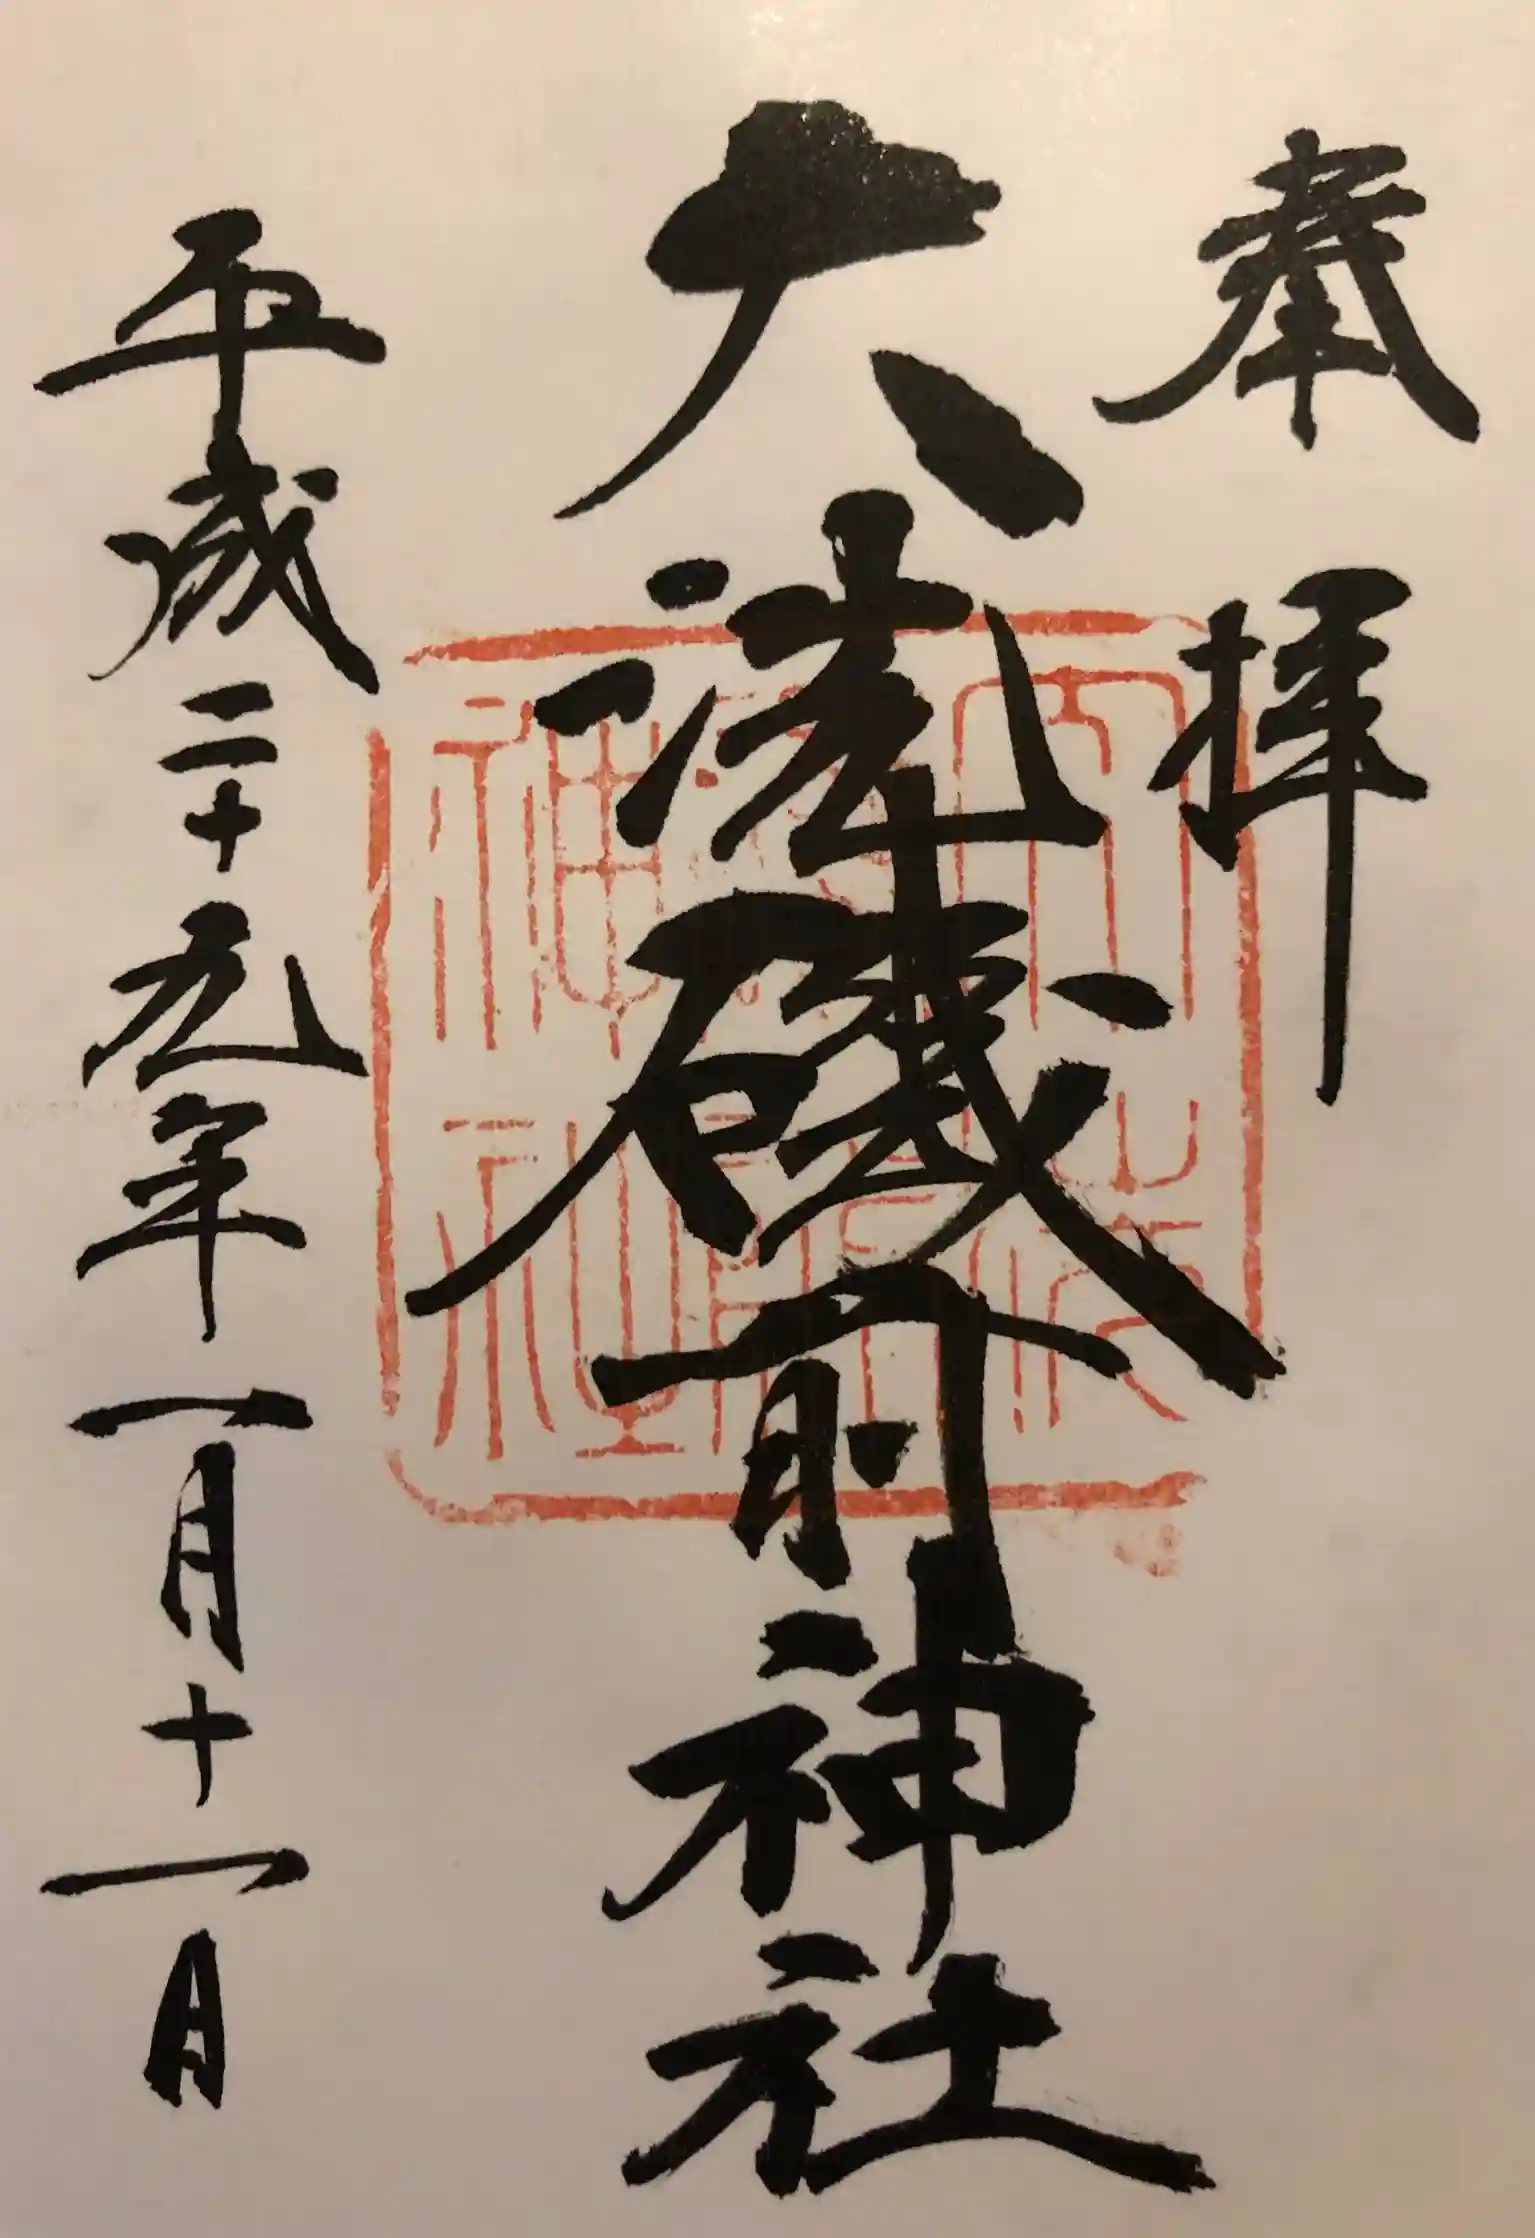 奉拝
大洗磯前神社
平成二十九年一月十一日